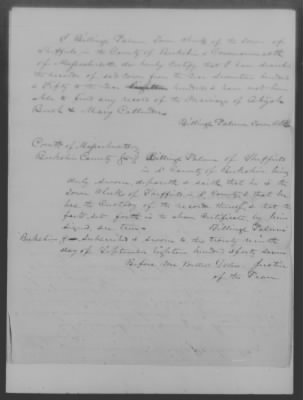 I Billings Palmer Town Clerk of the Town of
Sheffield in the County of Berkshire & Commonwealth
of Massachusetts do hereby certify that I have searched
the records of said town from the Year Seventeen hundred
& Fifty to the Year hundred & have not been
able to find any record of the Marriage of
Bush & Mary Callender
Billings Palmer Town Clerk
County of Massachusetts
Berkshire County Billings Palmer of Sheffield
in County of Berkshire being
duly sworn deposeth & saith that he is the
Town Clerk of Sheffield in County & that he
has the Custody of the records thereof & that the
facts set forth in the above Certificate by him
signed are true Billings Palmer
Berkshire Subscribed & sworn to this twenty ninth
day of September eighteen hundred & forty seven
Before me Justice
of the Peace